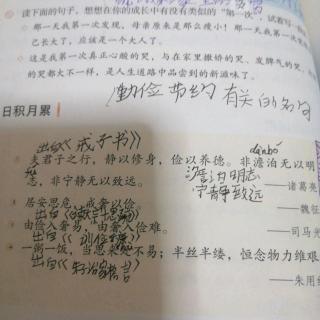 读下面的句子,想想在你的成长中有没有类似的“第一次”,试着写
那一天我第一次发现,母亲原来是那么瘦小!那一天我第一次
己长大了,应该是一个大人了。
这是我第一次真正心酸的哭,与在家里撒娇的哭、发脾气的哭,
的哭都大不一样,是人生道路中品尝到的新滋味了。
勤俭节约有关的名句
日积月累
出自《诫子书》
dàn bó
夫君子之行,静以修身,俭以养德。非澹泊无以明
志,非宁静无以致远。
明志
宁静致远
——诸葛亮
居安思危,戒奢以俭。
——魏征
出自《
由俭入奢易,由奢入俭难。
——司马光
出自《训俭
一粥一饭,当思来处不易;半丝半缕,恒念物力维艰
——朱用纯
出自《朱子治家格言》